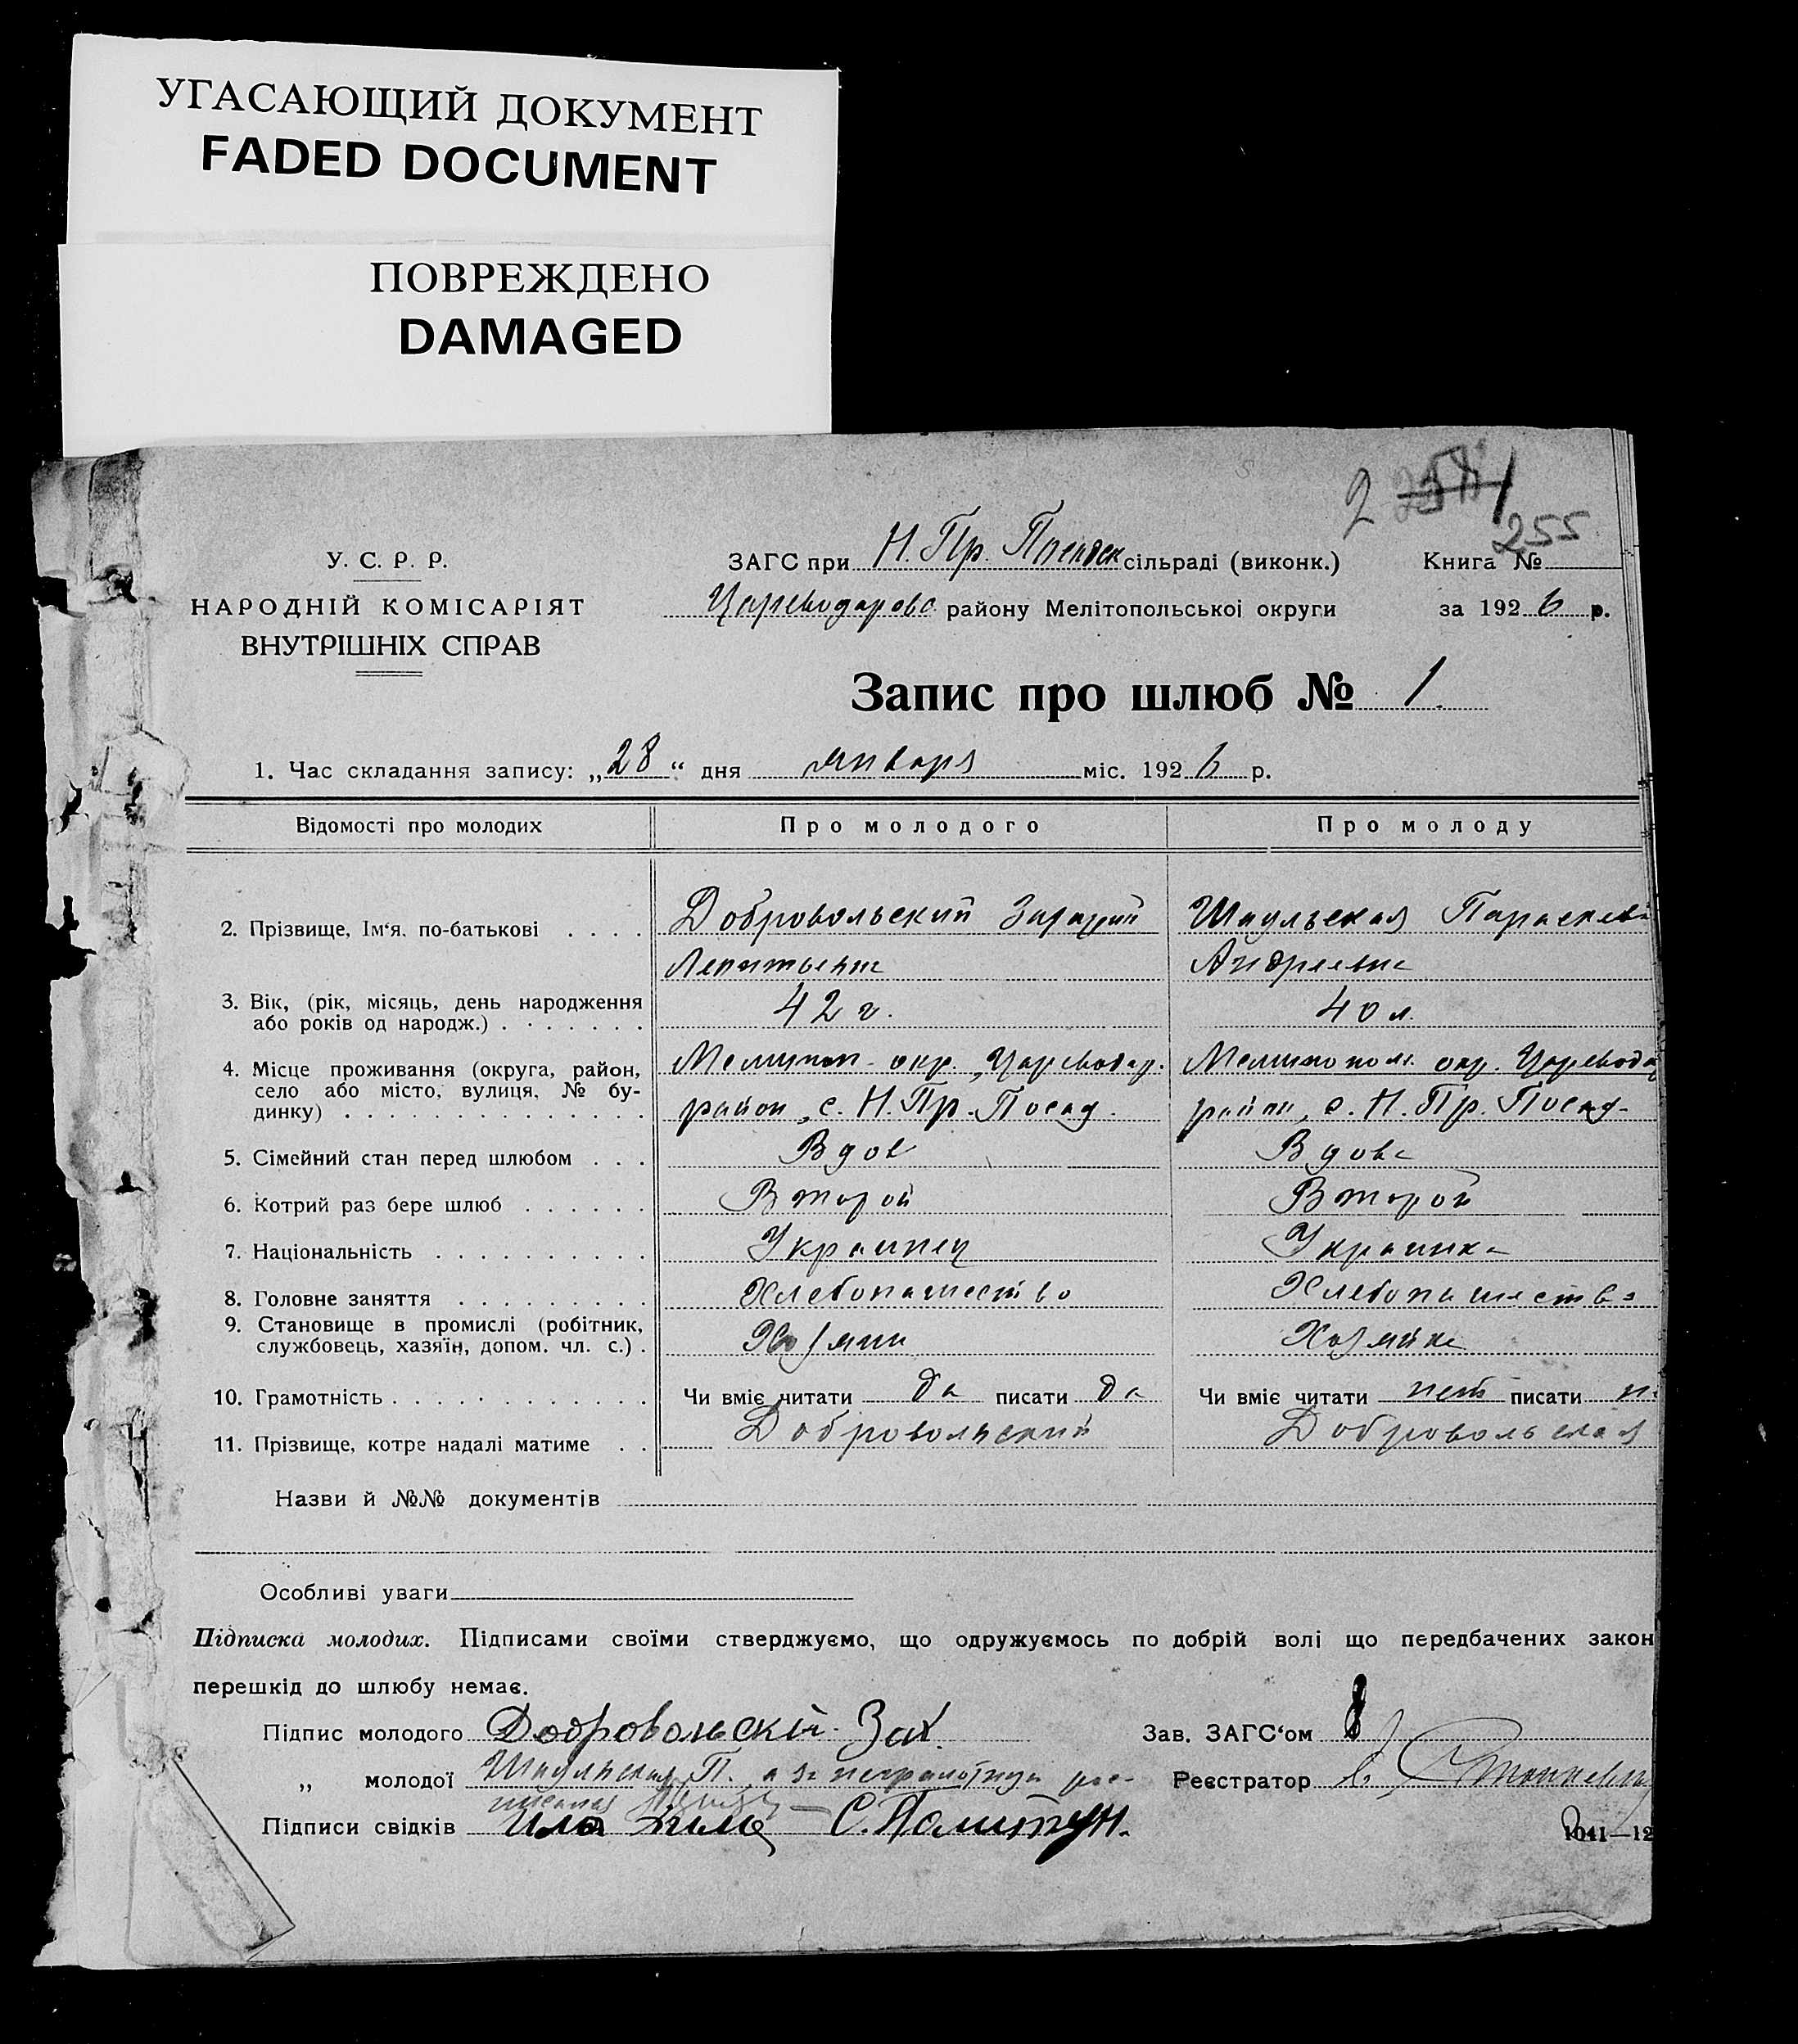 УГАСАЮЩИЙ ДОКУМЕНТ
FADED DOCUMENT
ПОВРЕЖДЕНО
DAMAGED
2
255
У. С. Р. Р.
НАРОДНІЙ КОМІСАРІЯТ
ВНУТРІШНІХ СПРАВ
ЗАГС при Н. Пр. сільраді (виконк.) Книга №
Цареводаровс. району Мелітопольської округи за 1926 р.
Запис про шлюб № 1.
1. Час складання запису: „28“ дня января міс. 1926 р.
Відомості про молодих Про молодого Про молоду
2. Прізвище, Ім‘я, по-батькові . . . . Добровольский Шаульская Параскева
Леонтьевич Андреевна
3. Вік, (рік, місяць, день народження
або років од народж.) . . . . . . . 42 г. 40 л.
4. Місце проживання (округа, район,
село або місто, вулиця, № бу-
динку) . . . . . . . . . . . . . .
Мелитоп. окр., Цареводар. Мелитопол. окр. Цареводар
район, с. Н. Пр. Посад. район, с. Н. Пр. Посад.
5. Сімейний стан перед шлюбом . . . Вдов Вдова
6. Котрий раз бере шлюб . . . . . . Второй Второй
7. Національність . . . . . . . . . . Украинец Украинка
8. Головне заняття . . . . . . . . . Хлебопашество Хлебопашество
9. Становище в промислі (робітник,
службовець, хазяїн, допом. чл. с.) . Хозяин Хозяйка
10. Грамотність . . . . . . . . . . . . Чи вміє читати да писати да Чи вміє читати нет писати н
11. Прізвище, котре надалі матиме . . Добровольский Добровольская
Назви й №№ документів
Особливі уваги
Підписка молодих. Підписами своїми стверджуємо, що одружуємось по добрій волі що передбачених закон
перешкід до шлюбу немає.
Підпис молодого Добровольскій Зах. Зав. ЗАГС‘ом
„ молодої Шаульская П., а за неграмотную рос- Реєстратор
писалась
Підписи свідків
1041—12